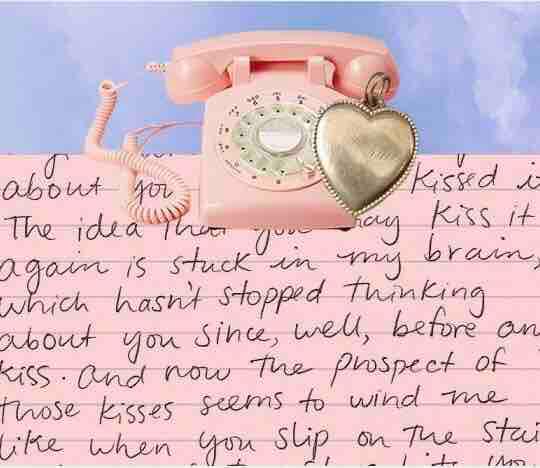 about you kissed it
The idea that you may kiss it
again is stuck in my brain,
which hasn't stopped thinking
about you since, well, before an
kiss. and now the prospect of
those kisses seems to wind me
like when you slip on the stai